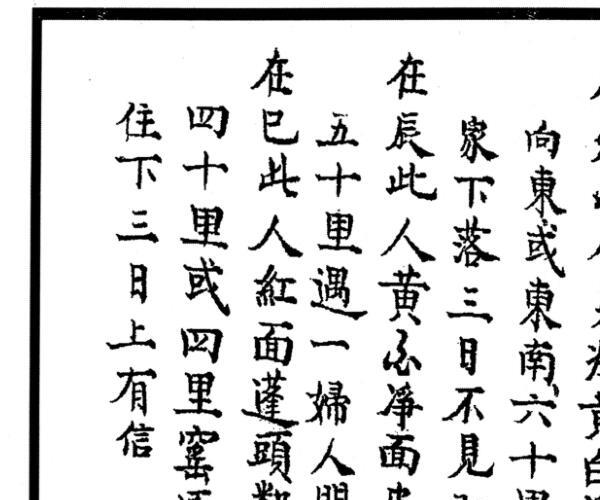 向東或東南六十里
家下落三日不見
在辰此人黄色淨面
五十里遇一婦人
在巳此人紅面蓬頭
四十里或四里窑
住下三日上有信